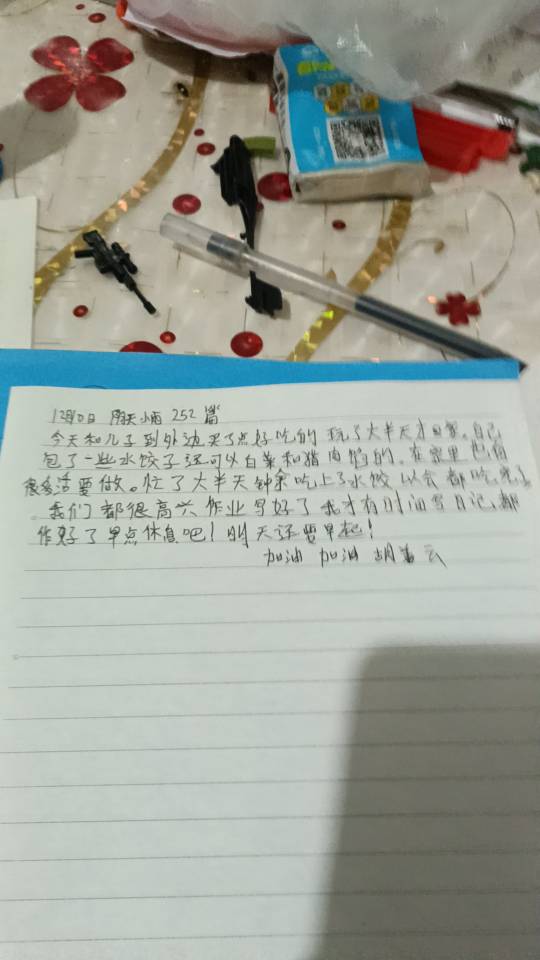 12月10日 阴天小雨 252 篇
今天和儿子到外边买了点好吃的 玩了大半天才回家。自己
包了一些水饺子还可以白菜和猪肉馅的。在家里也有
很多活要做。忙了大半天钟余吃上了水饺 以会都吃完了
我们都很高兴作业写好了我才有时间写日记,都
作好了早点休息吧!明天还要早起!
加油 加油 胡 云